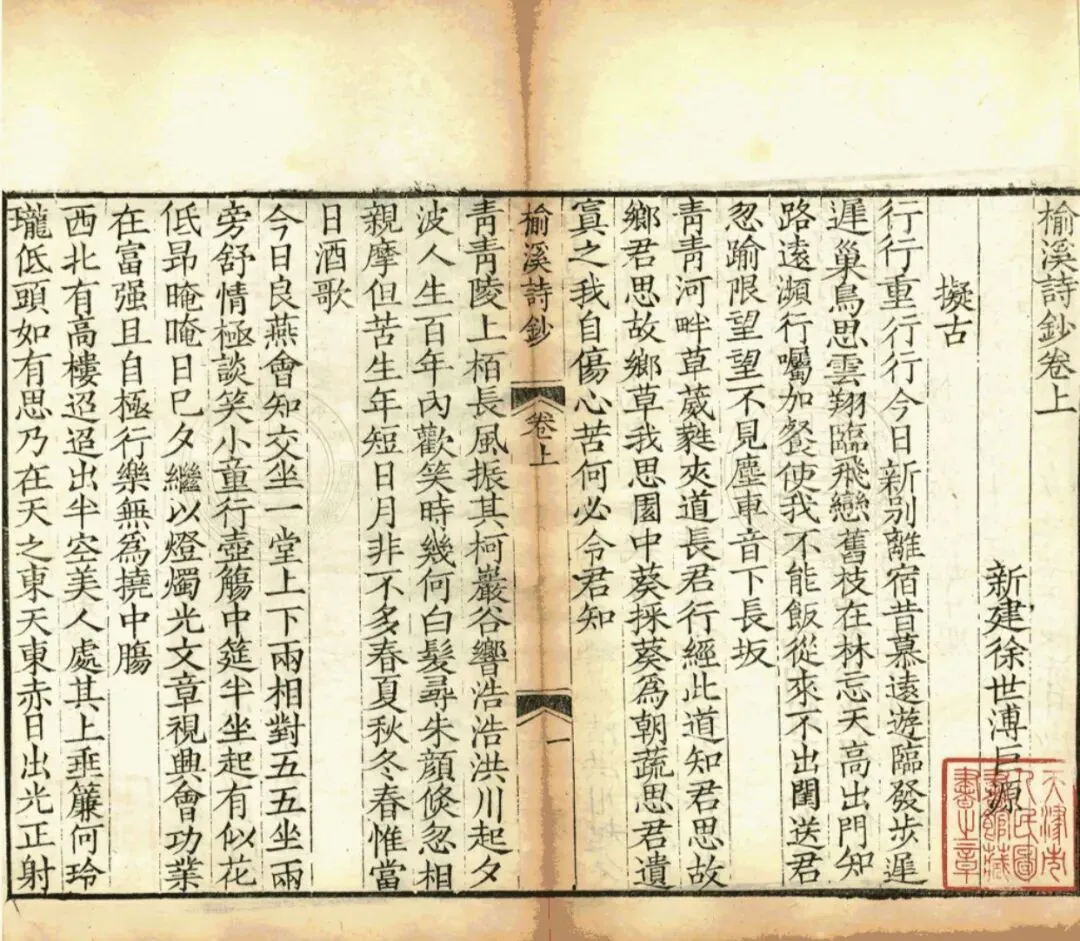 榆溪詩鈔卷上
新建徐世溥巨源
擬古
行行重行行今日新别離宿昔慕遠遊臨發步遲
遲巢鳥思雲翔臨飛戀舊枝在林忘天高出門知
路遠瀕行囑加餐使我不能飯從來不出閨送君
忽踰限望望不見塵車音下長坂
青青河畔草葳蕤夾道長君行經此道知君思故
鄉君思故鄉草我思園中葵採葵為朝蔬思君遺
寘之我自傷心苦何必令君知
榆溪詩鈔
卷上
一
青青陵上栢長風振其柯巖谷響浩浩洪川起夕
波人生百年內歡笑時幾何白髮尋朱顏倏忽相
親摩但苦生年短日月非不多春夏秋冬春惟當
日酒歌
今日良燕會知交坐一堂上下兩相對五五坐兩
旁舒情極談笑小童行壺觴中筵半坐起有似花
低昂晻晻日巳夕繼以燈燭光文章視典會功業
在富强且自極行樂無為撓中腸
西北有高樓迢迢出半空美人處其上垂簾何玲
瓏低頭如有思乃在天之東天東赤日出光正射
天津市
人民圖
書館藏
書之章